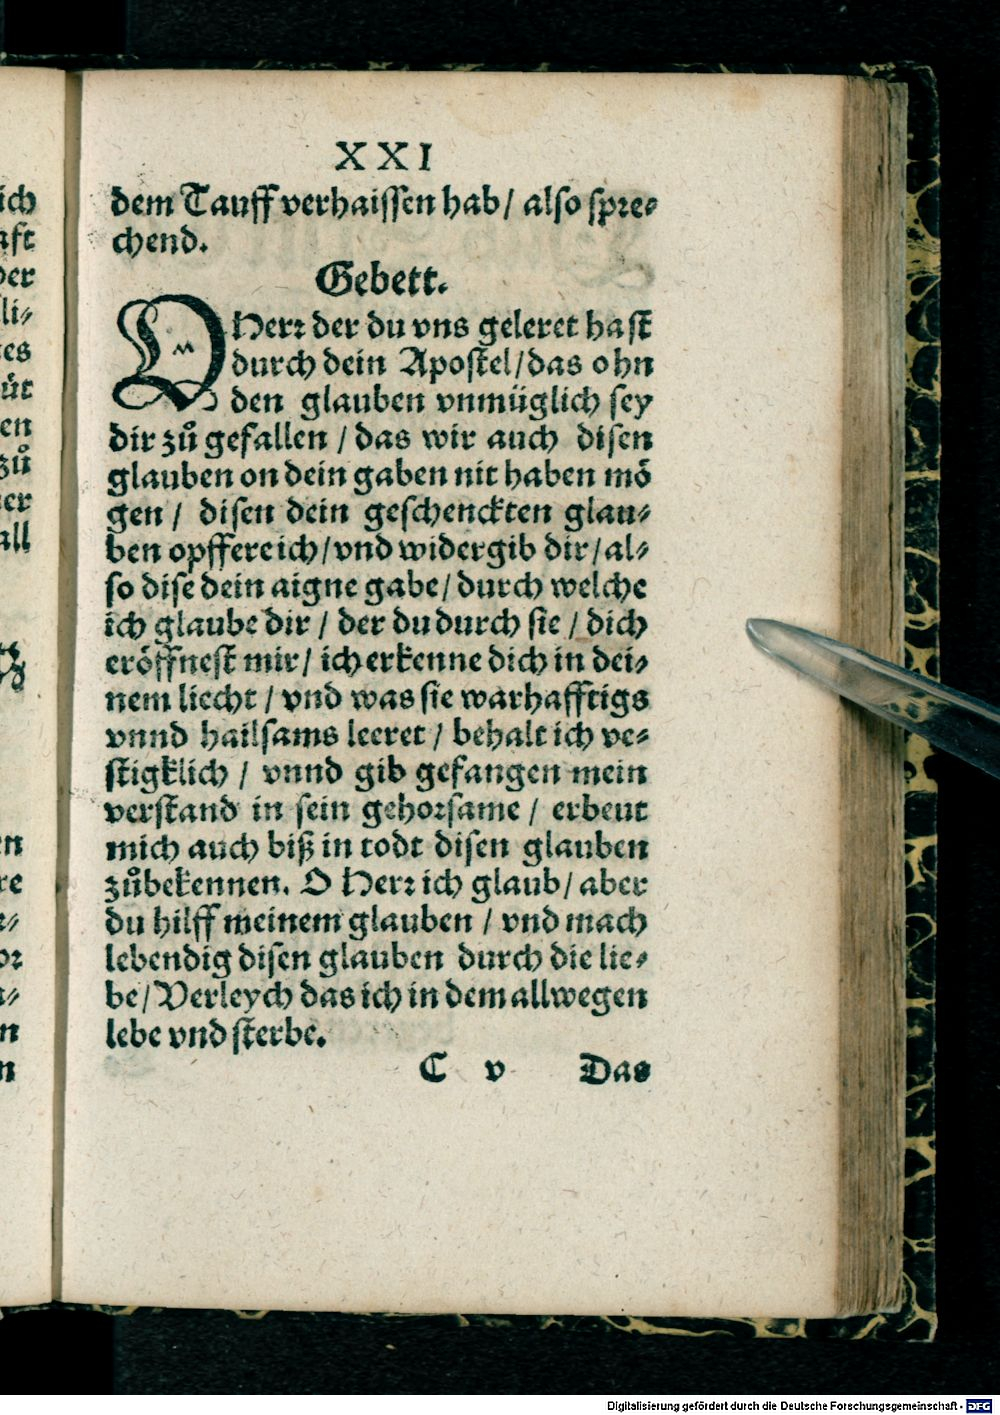 XXI
dem Tauff verhaissen hab/ also spre-
chend.
Gebett.
O Herr der du vns geleret hast
durch dein Apostel/das ohn
den glauben vnmüglich sey
dir zů gefallen / das wir auch disen
glauben on dein gaben nit haben mö
gen / disen dein geschenckten glau-
ben opffere ich/vnd widergib dir/al-
so dise dein aigne gabe/ durch welche
ich glaube dir / der du durch sie / dich
eröffnest mir/ ich erkenne dich in dei-
nem liecht / vnd was sie warhafftigs
vnnd hailsams leeret / behalt ich ve-
stigklich / vnnd gib gefangen mein
verstand in sein gehorsame / erbeut
mich auch biß in todt disen glauben
zůbekennen. O Herr ich glaub/ aber
du hilff meinem glauben / vnd mach
lebendig disen glauben durch die lie-
be/ Verleych das ich in dem allwegen
lebe vnd sterbe.
C v Das
ich
aft
der
li-
tes
üt
en
zů
er
all
en
re
or
n
n
Digitalisierung gefördert durch die Deutsche Forschungsgemeinschaft - DFG